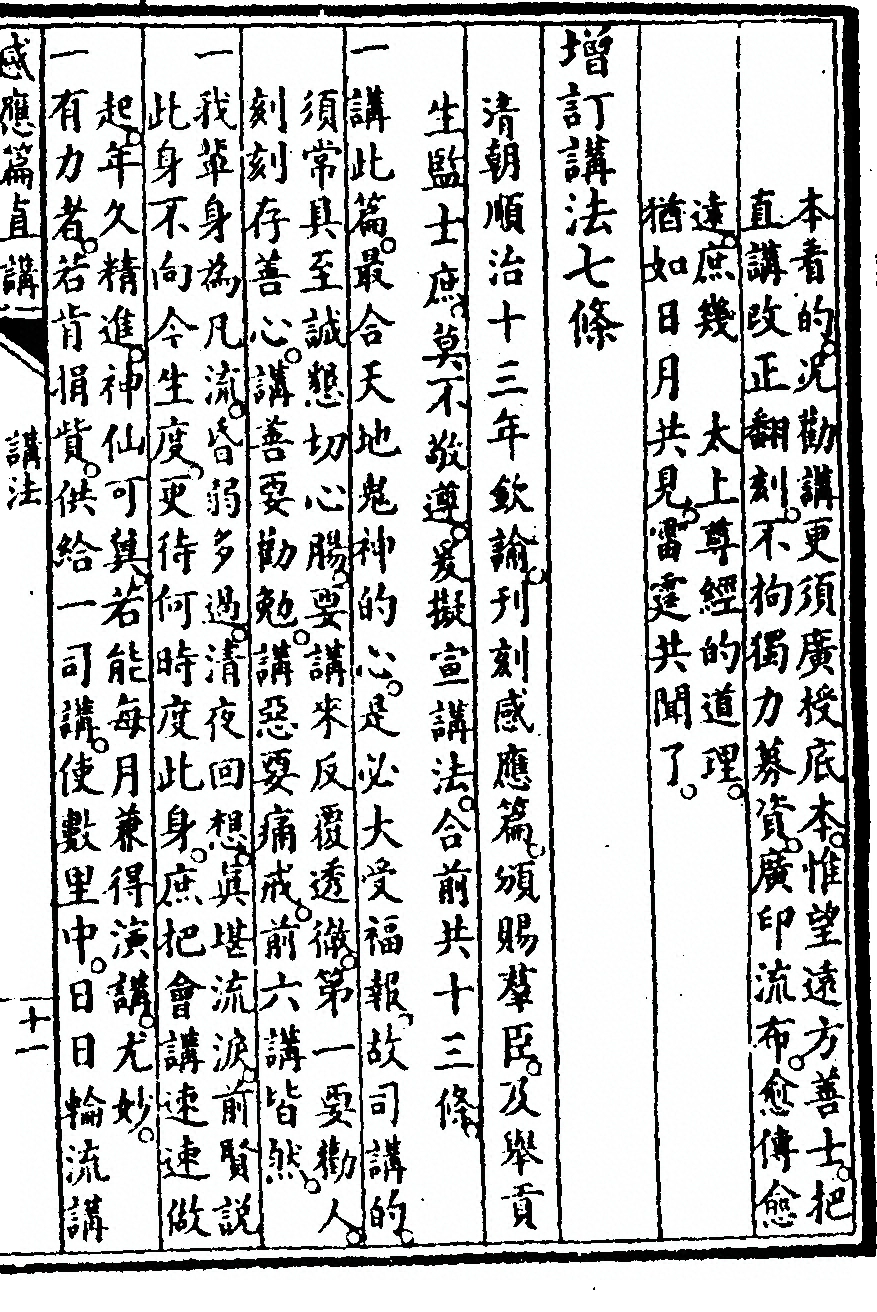 本看的。况勸講更須廣授底本。惟望遠方善士。把
直講改正翻刻。不拘獨力募資。廣印流布。愈傳愈
遠。庶幾　太上尊經的道理。
猶如日月共見。雷霆共聞了。
增訂講法七條
清朝順治十三年欽諭。刊刻感應篇。頒賜羣臣。及舉貢
生監士庶。莫不敬遵。爰擬宣講法。合前共十三條。
一講此篇。最合天地鬼神的心。是必大受福報。故司講的。
須常具至誠懇切心腸。要講來反覆透徹。第一要勸人。
刻刻存善心。講善要勸勉。講惡要痛戒。前六講皆然。
一我輩身為凡流。昏弱多過。清夜回想。眞堪流淚。前賢說
此身不向今生度。更待何時度此身。庶把會講速速做
起。年久精進。神仙可冀。若能每月兼得演講。尤妙。
一有力者。若肯捐貲。供給一司講。使數里中。日日輪流講
感應篇直講
講法
十一